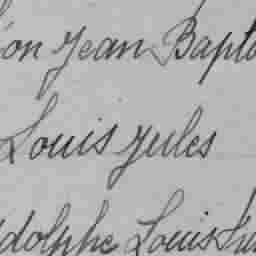 on Jean Bapt
Louis Jules
dolphe Louis